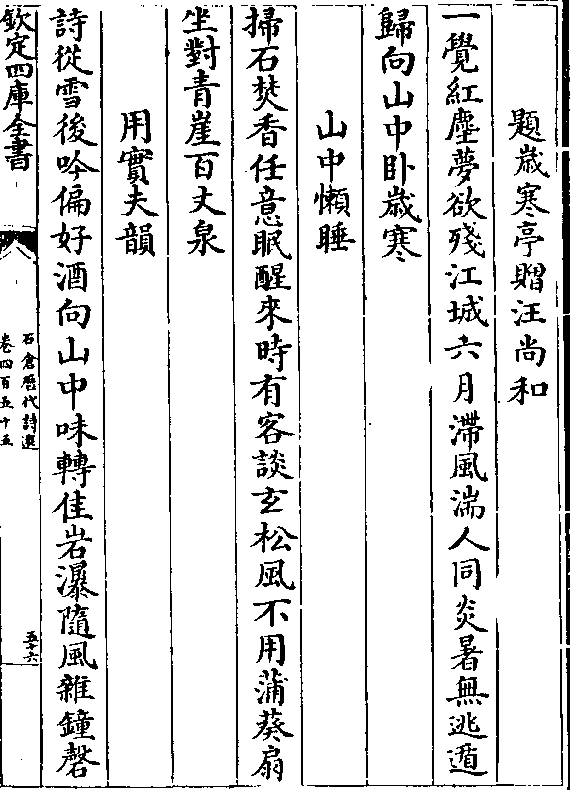 題歳寒亭贈汪尚和
一覺紅塵夢欲殘江城六月滯風湍人同炎暑無逃遁
歸向山中卧歳寒
山中懶睡
掃石焚香任意眠醒來時有客談玄松風不用蒲葵扇
坐對青崖百丈泉
用實夫韻
詩從雪後吟偏好酒向山中味轉佳岩瀑隨風雜鐘磬
欽定四庫全書
石倉歴代詩選
卷四百五十五
五十六